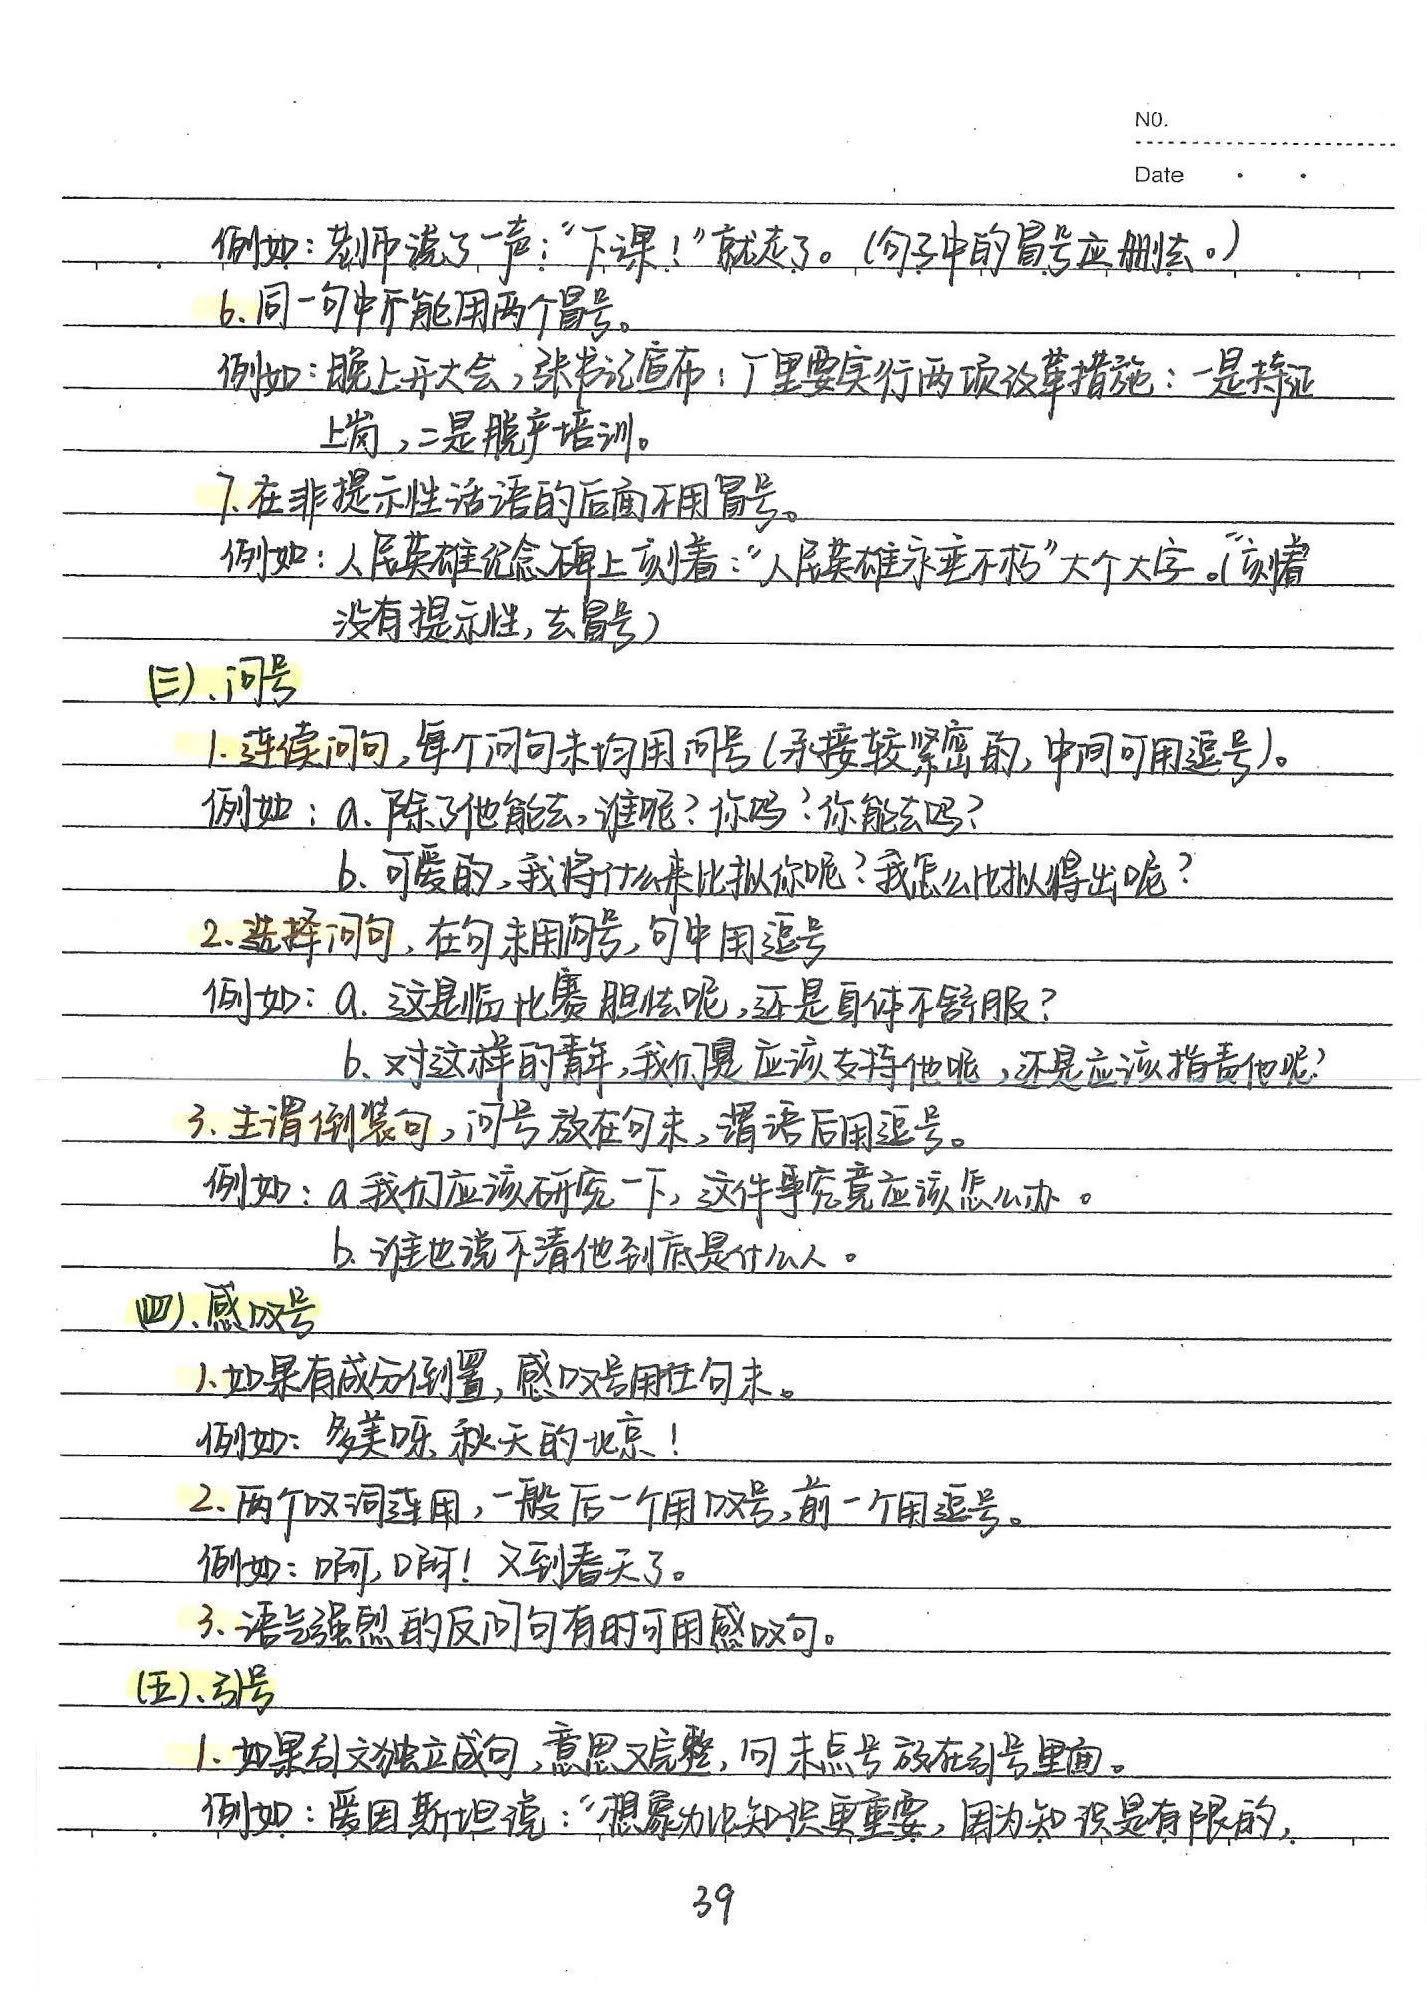 NO.
Date
例如：老师说了一声：“下课！”就走了。（句子中的冒号应删去。）
6.同一句中不能用两个冒号。
例如：晚上开大会，张书记宣布：厂里要实行两项改革措施：一是持证
上岗，二是脱产培训。
7.在非提示性话语的后面不用冒号。
例如：人民英雄纪念碑上刻着：“人民英雄永垂不朽”大个大字。（“刻着
没有提示性，去冒号）
（三）、问号
1.连续问句，每个问句末均用问号（承接较紧密的，中间可用逗号）。
例如：a.除了他能去，谁呢？你吗？你能去吗？
b.可爱的，我将什么来比拟你呢？我怎么比拟得出呢？
2.选择问句，在句末用问号，句中用逗号
例如：a.这是临比赛胆怯呢，还是身体不舒服？
b.对这样的青年，我们是应该支持他呢，还是应该指责他呢？
3.主谓倒装句，问号放在句末，谓语后用逗号。
例如：a.我们应该研究一下，这件事究竟应该怎么办。
b.谁也说不清他到底是什么人。
（四）、感叹号
1.如果有成分倒置，感叹号用在句末。
例如：多美呀，秋天的北京！
2.两个叹词连用，一般后一个用叹号，前一个用逗号。
例如：啊，啊！又到春天了。
3.语气强烈的反问句有时可用感叹句。
（五）、引号
1.如果引文独立成句，意思又完整，句末点号放在引号里面。
例如：爱因斯坦说：“想象力比知识更重要，因为知识是有限的，
39